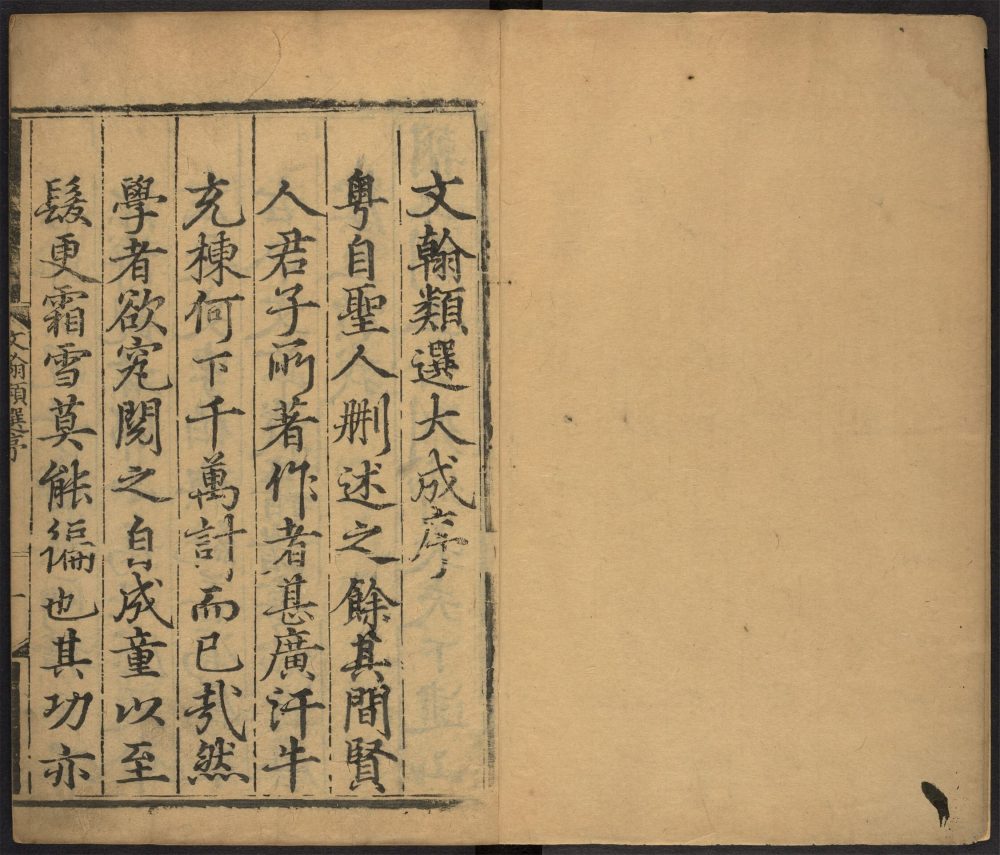 文翰類選大成序
粤自聖人刪述之餘其間賢
人君子所著作者甚廣汗牛
充棟何下千萬計而已㢤然
學者欲究閱之自成童以至
髮更霜雪莫能徧也其功亦
文翰類選序
一